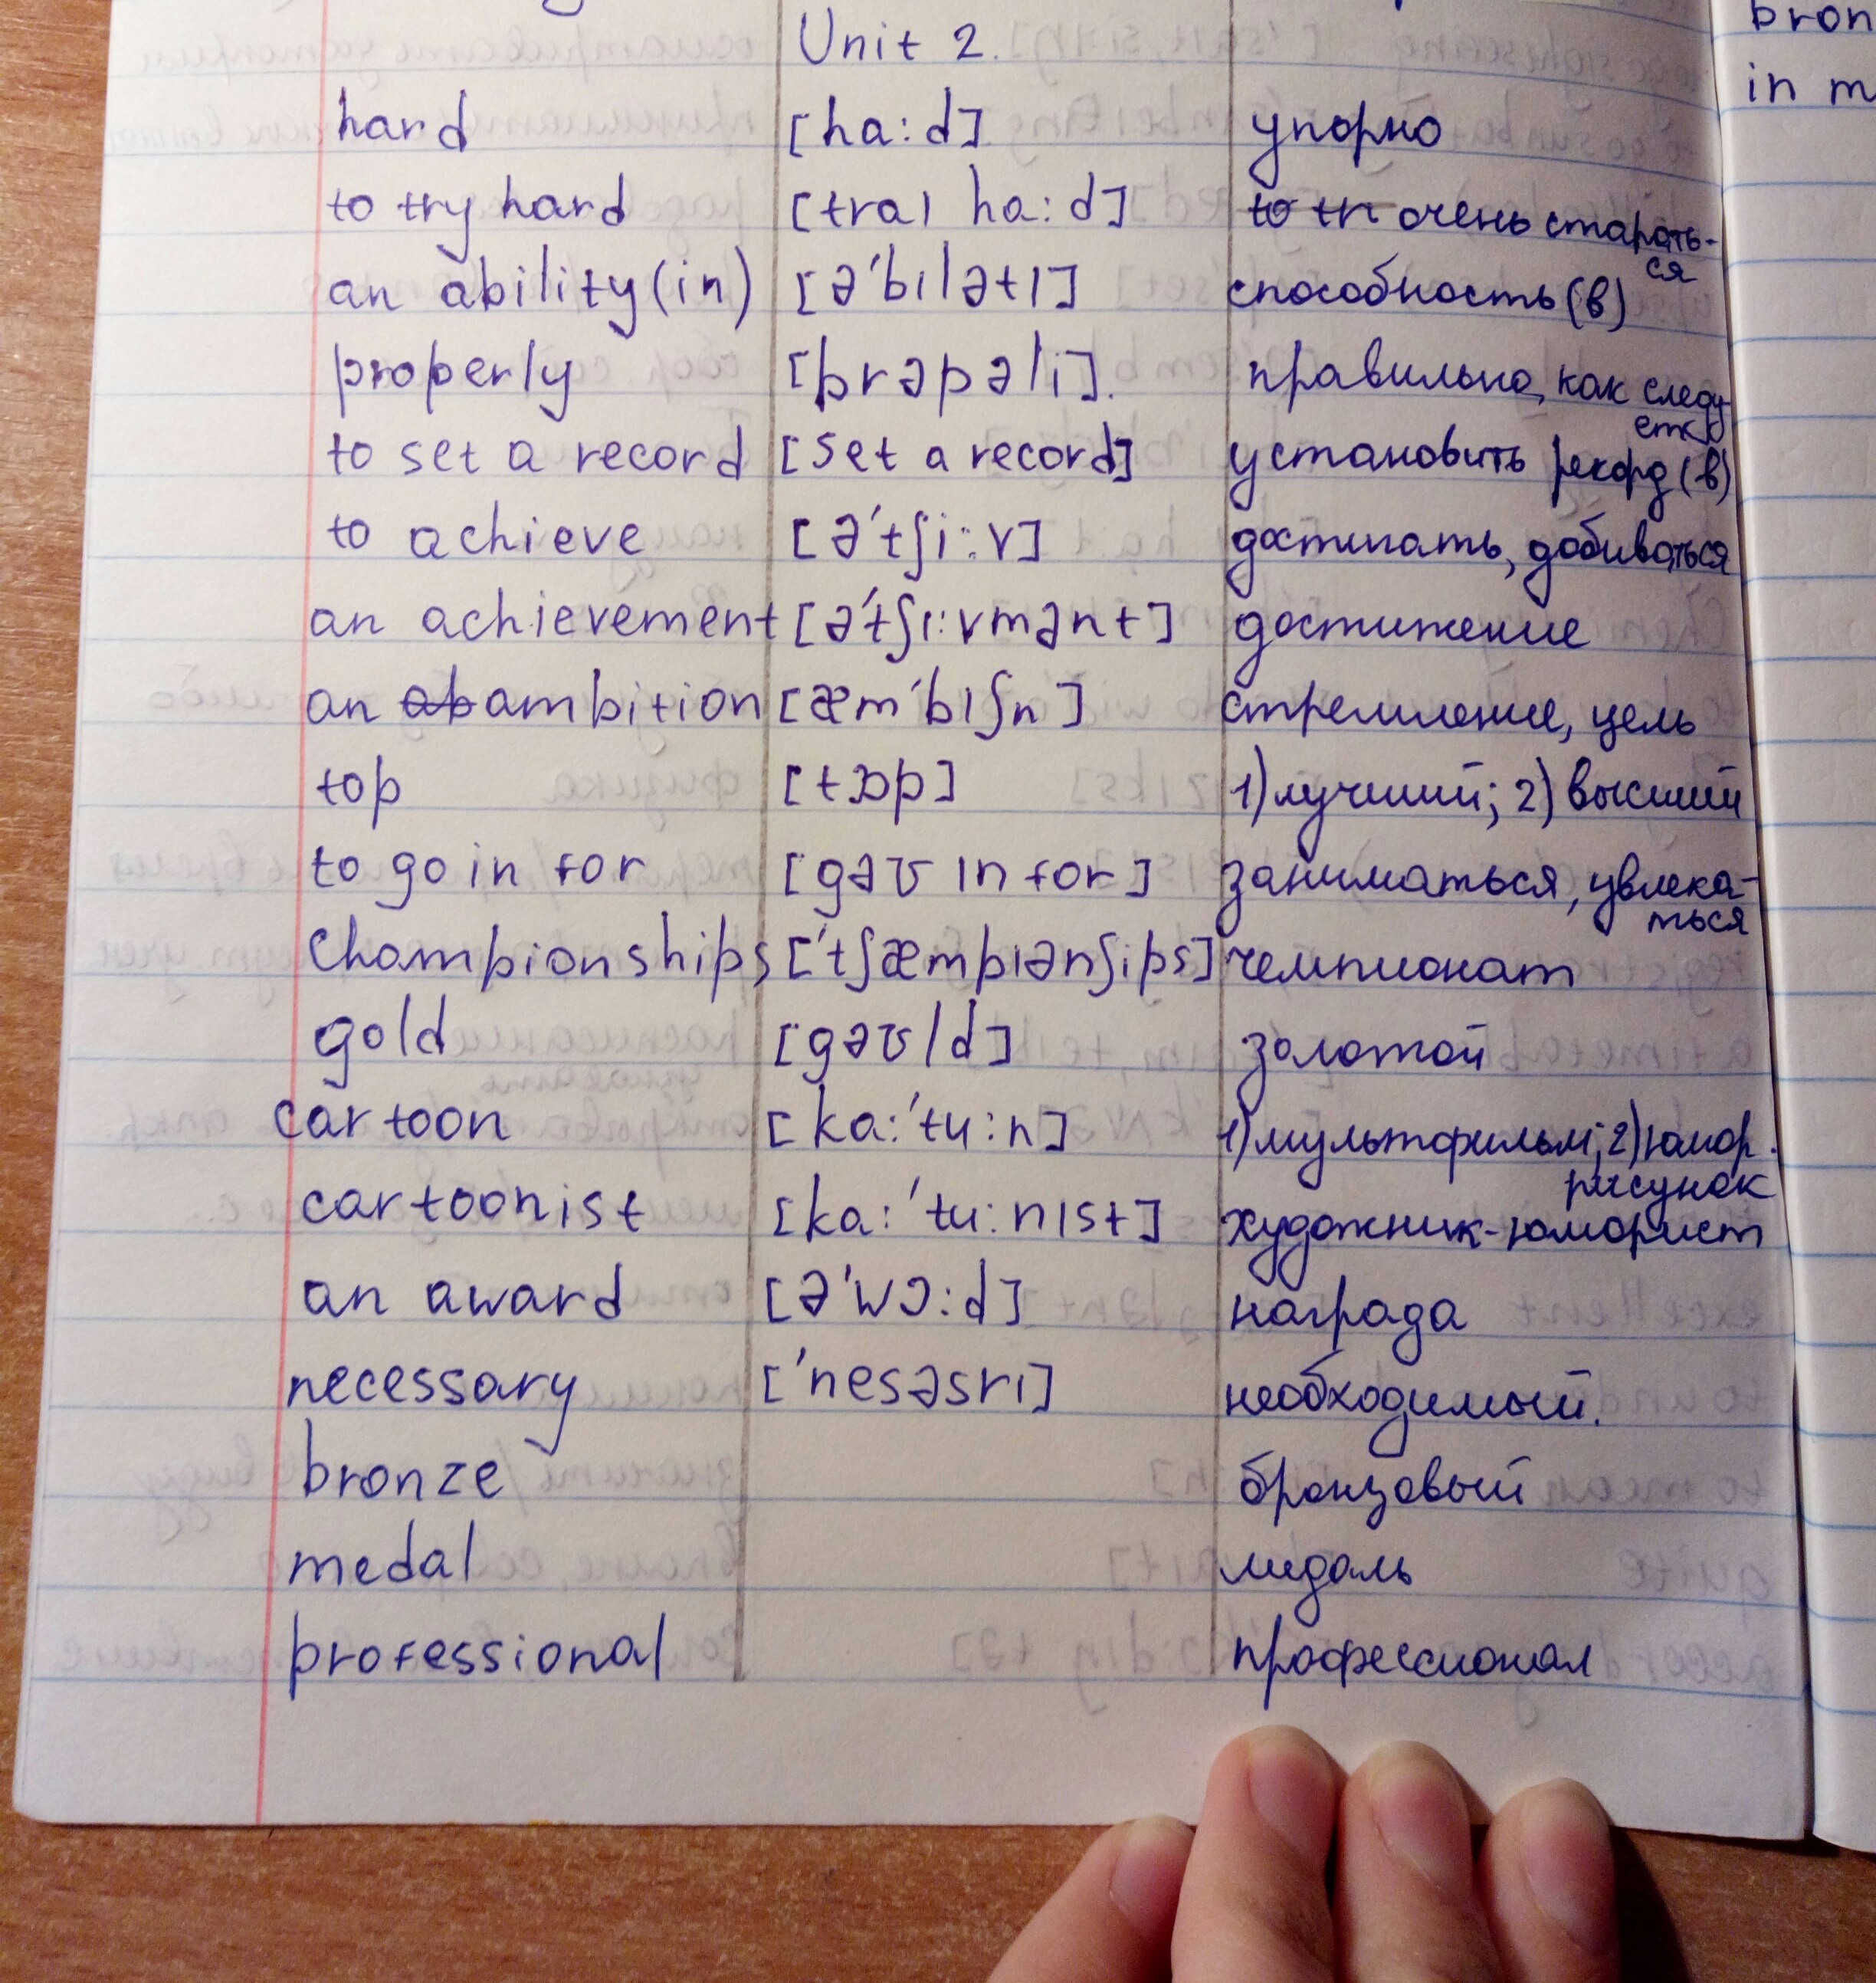 Unit 2.
hard [ha:d] упорно
to try hard [traı ha:d] to tr очень старать-
ся
an ability (in) [ə'bılətı] способность (в)
properly [prəpəli]. правильно, как следу-
ет
to set a record [set a record] установить рекорд (в)
to achieve [ə'tʃi:v] достигать, добиваться
an achievement [ə'tʃı:vmənt] достижение
an ab ambition [æm'bıʃn] стремление, цель
top [tɔp] 1) лучший; 2) высший
to go in for [gəʊ ın for] заниматься, увлека-
ться
Championships ['tʃæmpıənʃips] чемпионат
gold [gəʊld] золотой
cartoon [ka:'tu:n] 1) мультфильм; 2) юмор.
рисунок
cartoonist [ka:'tu:nıst] художник-юморист
an award [ə'wɔ:d] награда
necessary ['nesəsrı] необходимый.
bronze бронзовый
medal медаль
professional профессионал
bron
in m